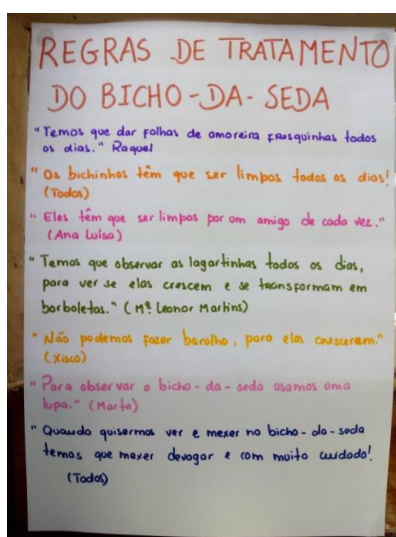 REGRAS DE TRATAMENTO
DO BICHO-DA-SEDA
"Temos que dar folhas de amoreira fresquinhas todos
os dias." Raquel
"Os bichinhos têm que ser limpos todos os dias!
(Todos)
"Eles têm que ser limpos por um amigo de cada vez."
(Ana Luísa)
"Temos que observar as lagartinhas todos os dias,
para ver se elas crescem e se transformam em
borboletas." (Mª Leonor Martins)
"Não podemos fazer barulho, para elas crescerem."
(Xisco)
"Para observar o bicho-da-seda usamos uma
lupa." (Marta)
"Quando quisermos ver e mexer no bicho-da-seda
temos que mexer devagar e com muito cuidado!
(Todos)